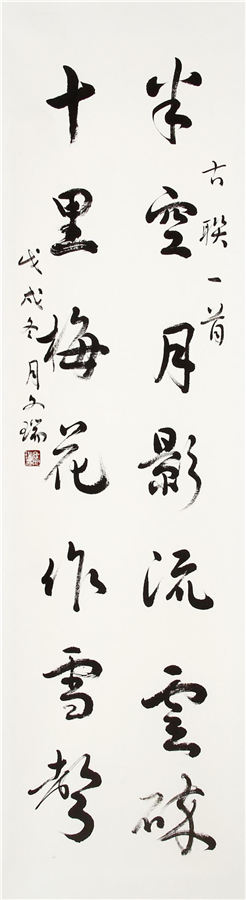 古联一首
半空月影流云碎
十里梅花作雪声
戊戌冬月文瑞